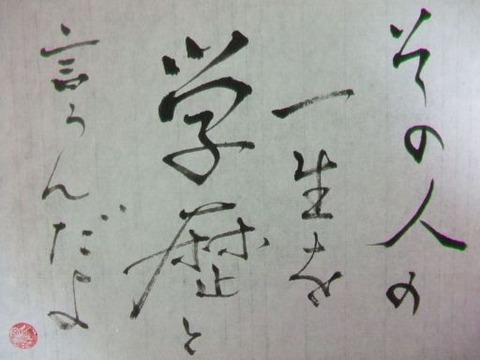 その人の
一生を
学歴と
言うんだよ